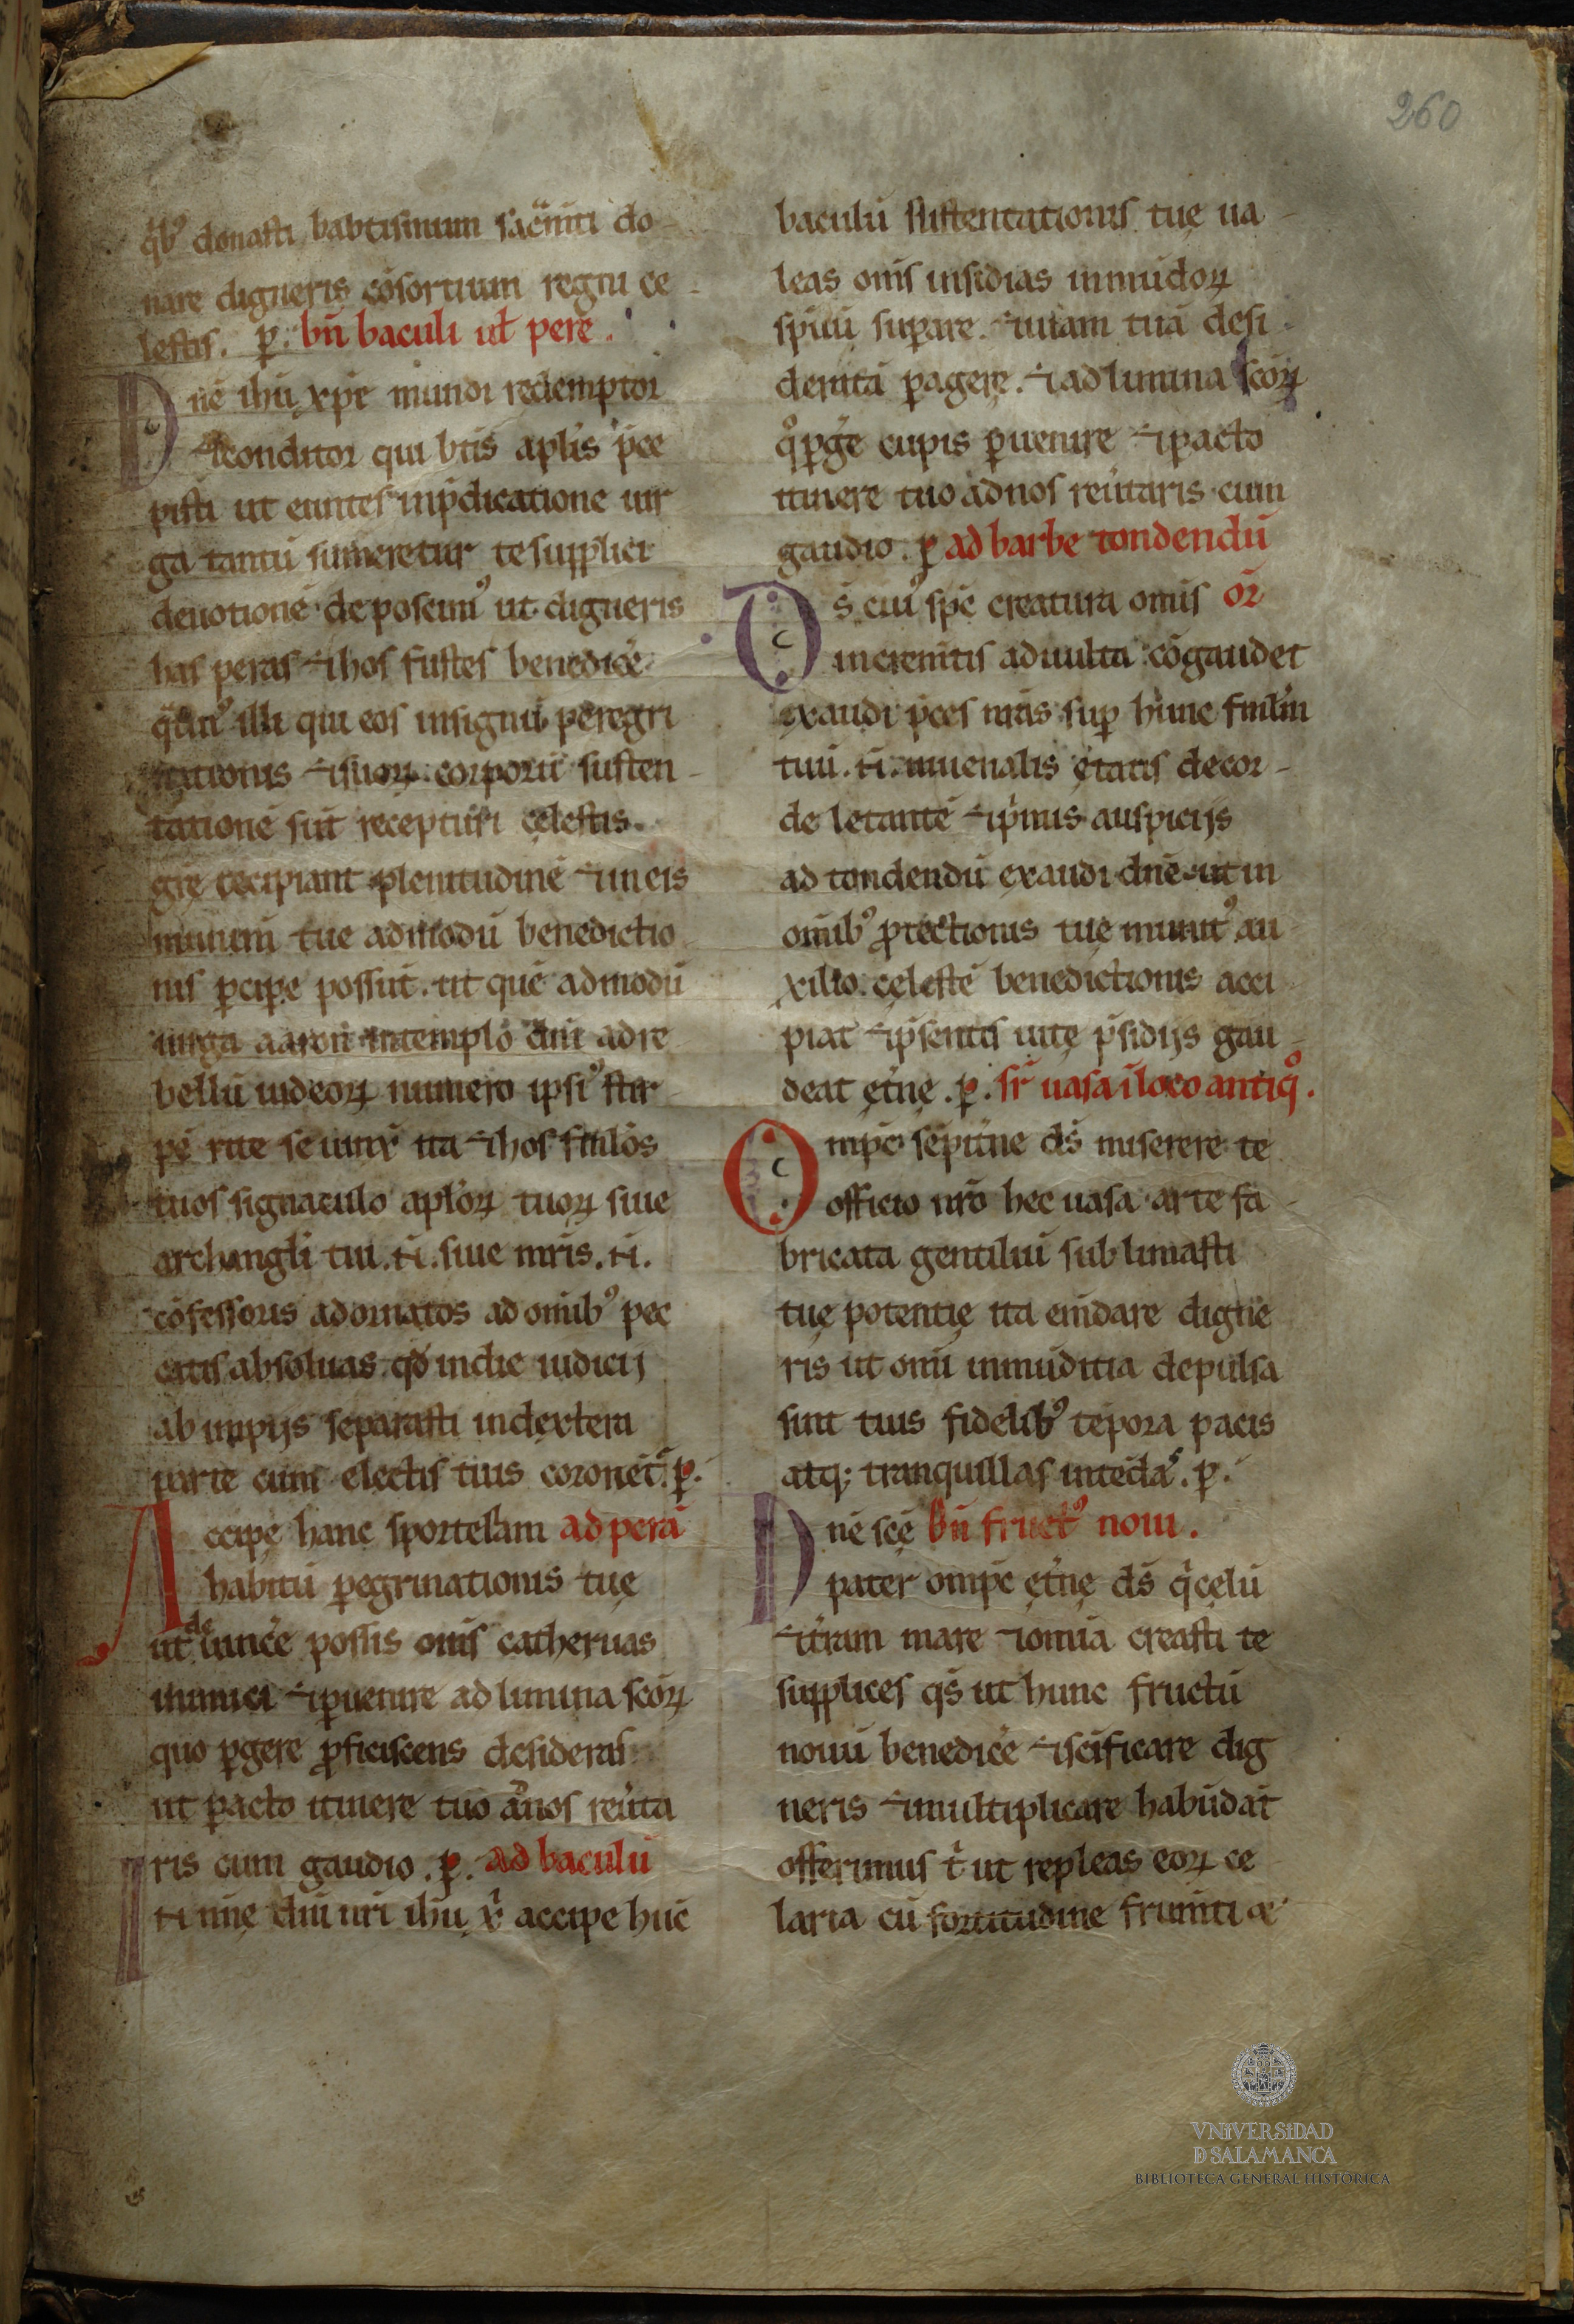 260
q̃bꝰ donasti babtismum sac̃m̃ti do-
nare digneris cõsortium regni ce-
lestis. ꝑ. bñ baculi uł pere.
Dñe ihũ xp̃e mundi redemptor
⁊conditor qui bt̃is apl̃is p̃ce
pisti ut euntes inp̃dicatione uir
ga tantũ sumeretur te supplici
deuotionẽ deposcimꝰ ut digneris
has peras ⁊hos fustes benedicẽ
q̃tinꝰ illi qui eos insignũ peregri
nationis ⁊suoꝝ corporũ susten-
tationẽ sũt recepturi cęlestis
grę recipiant plenitudinẽ ⁊ineis
munim̃ tue admodũ benedictio
nis ꝑciꝑe possũt. ut quẽ admodũ
uirga aaron intemplo dñi adre
bellũ iudeoꝝ numero ipsiꝰ stir
pẽ rite ita ⁊hos fml̃os
tuos signaculo aplõꝝ tuoꝝ siue
archangl̃i tui .ñ. siue mr̃is .ñ.
cõfessoris adornatos ad om̃ibꝰ pec
catis absoluas q̃d indie iudicij
ab impijs separasti indextera
parte cum electis tuis coronet̃. ꝑ.
Accipe hanc sportellam ad perã
habitũ ꝑegrinationis tuę
ut deuincẽ possis om̃s catheruas
inimici ⁊ꝑuenire ad limina scõꝝ
quo ꝑgere ꝓficiscens desideras
ut ꝑacto itinere tuo ãnos reũta
ris cum gaudio .ꝑ. ad baculũ
In nñe dñi nr̃i ihũ x̃ accipe hũc
baculũ sustentationis tuę ua-
leas om̃s insidias inmũdoꝝ
spũũ suꝑare. ⁊uiam tuã desi-
derata ꝑagere. ⁊ad limina scõꝝ
q̊ ꝑg̃e cupis ꝑuenire ⁊ꝑacto
itinere tuo adnos reũtaris cum
gaudio. ꝑ ad barbe tondendũ
Ds̃ cuiꝰ sp̃e creatura om̃is or̃
increm̃tis adulta cõgaudet
exaudi p̃ces nr̃as suꝑ hunc fml̃m
tuũ .ñ. iuuenalis ętatis decor-
de letantẽ ⁊p̃mis auspicijs
ad tondendũ exaudi dñe ut in
om̃ibꝰ ꝓtectionis tuę munitꝰ au
xilio. cęlestẽ benedictionis acci-
piat ⁊p̃sentis uitę p̃sidijs gau-
deat et̃nę .ꝑ. sr̃ uasa ĩ loco antiq̊.
Omp̃c sẽpit̃ne ds̃ miserere te
officio nr̃o hec uasa arte fa-
bricata gentiliũ sublimasti
tuę potentię ita em̃dare digne
ris ut om̃i inmũditia depulsa
sint tuis fidelibꝰ tẽpora pacis
atq; tranquillas .ꝑ.
Dñe sc̃e bñ fructꝰ noui.
pater omp̃c et̃nę ds̃ q̃ cęlũ
⁊t̃ram mare ⁊om̃ia creasti te
supplices qs̃ ut hunc fructũ
nouũ benedicẽ ⁊sc̃ificare dig
neris ⁊multiplicare habũdãt
offerimus t̃ ut repleas eoꝝ ce
laria cũ fortitudine frum̃ti
VNiVERSiDAD
D SALAMANCA
BIBLIOTECA GENERAL HISTÓRICA